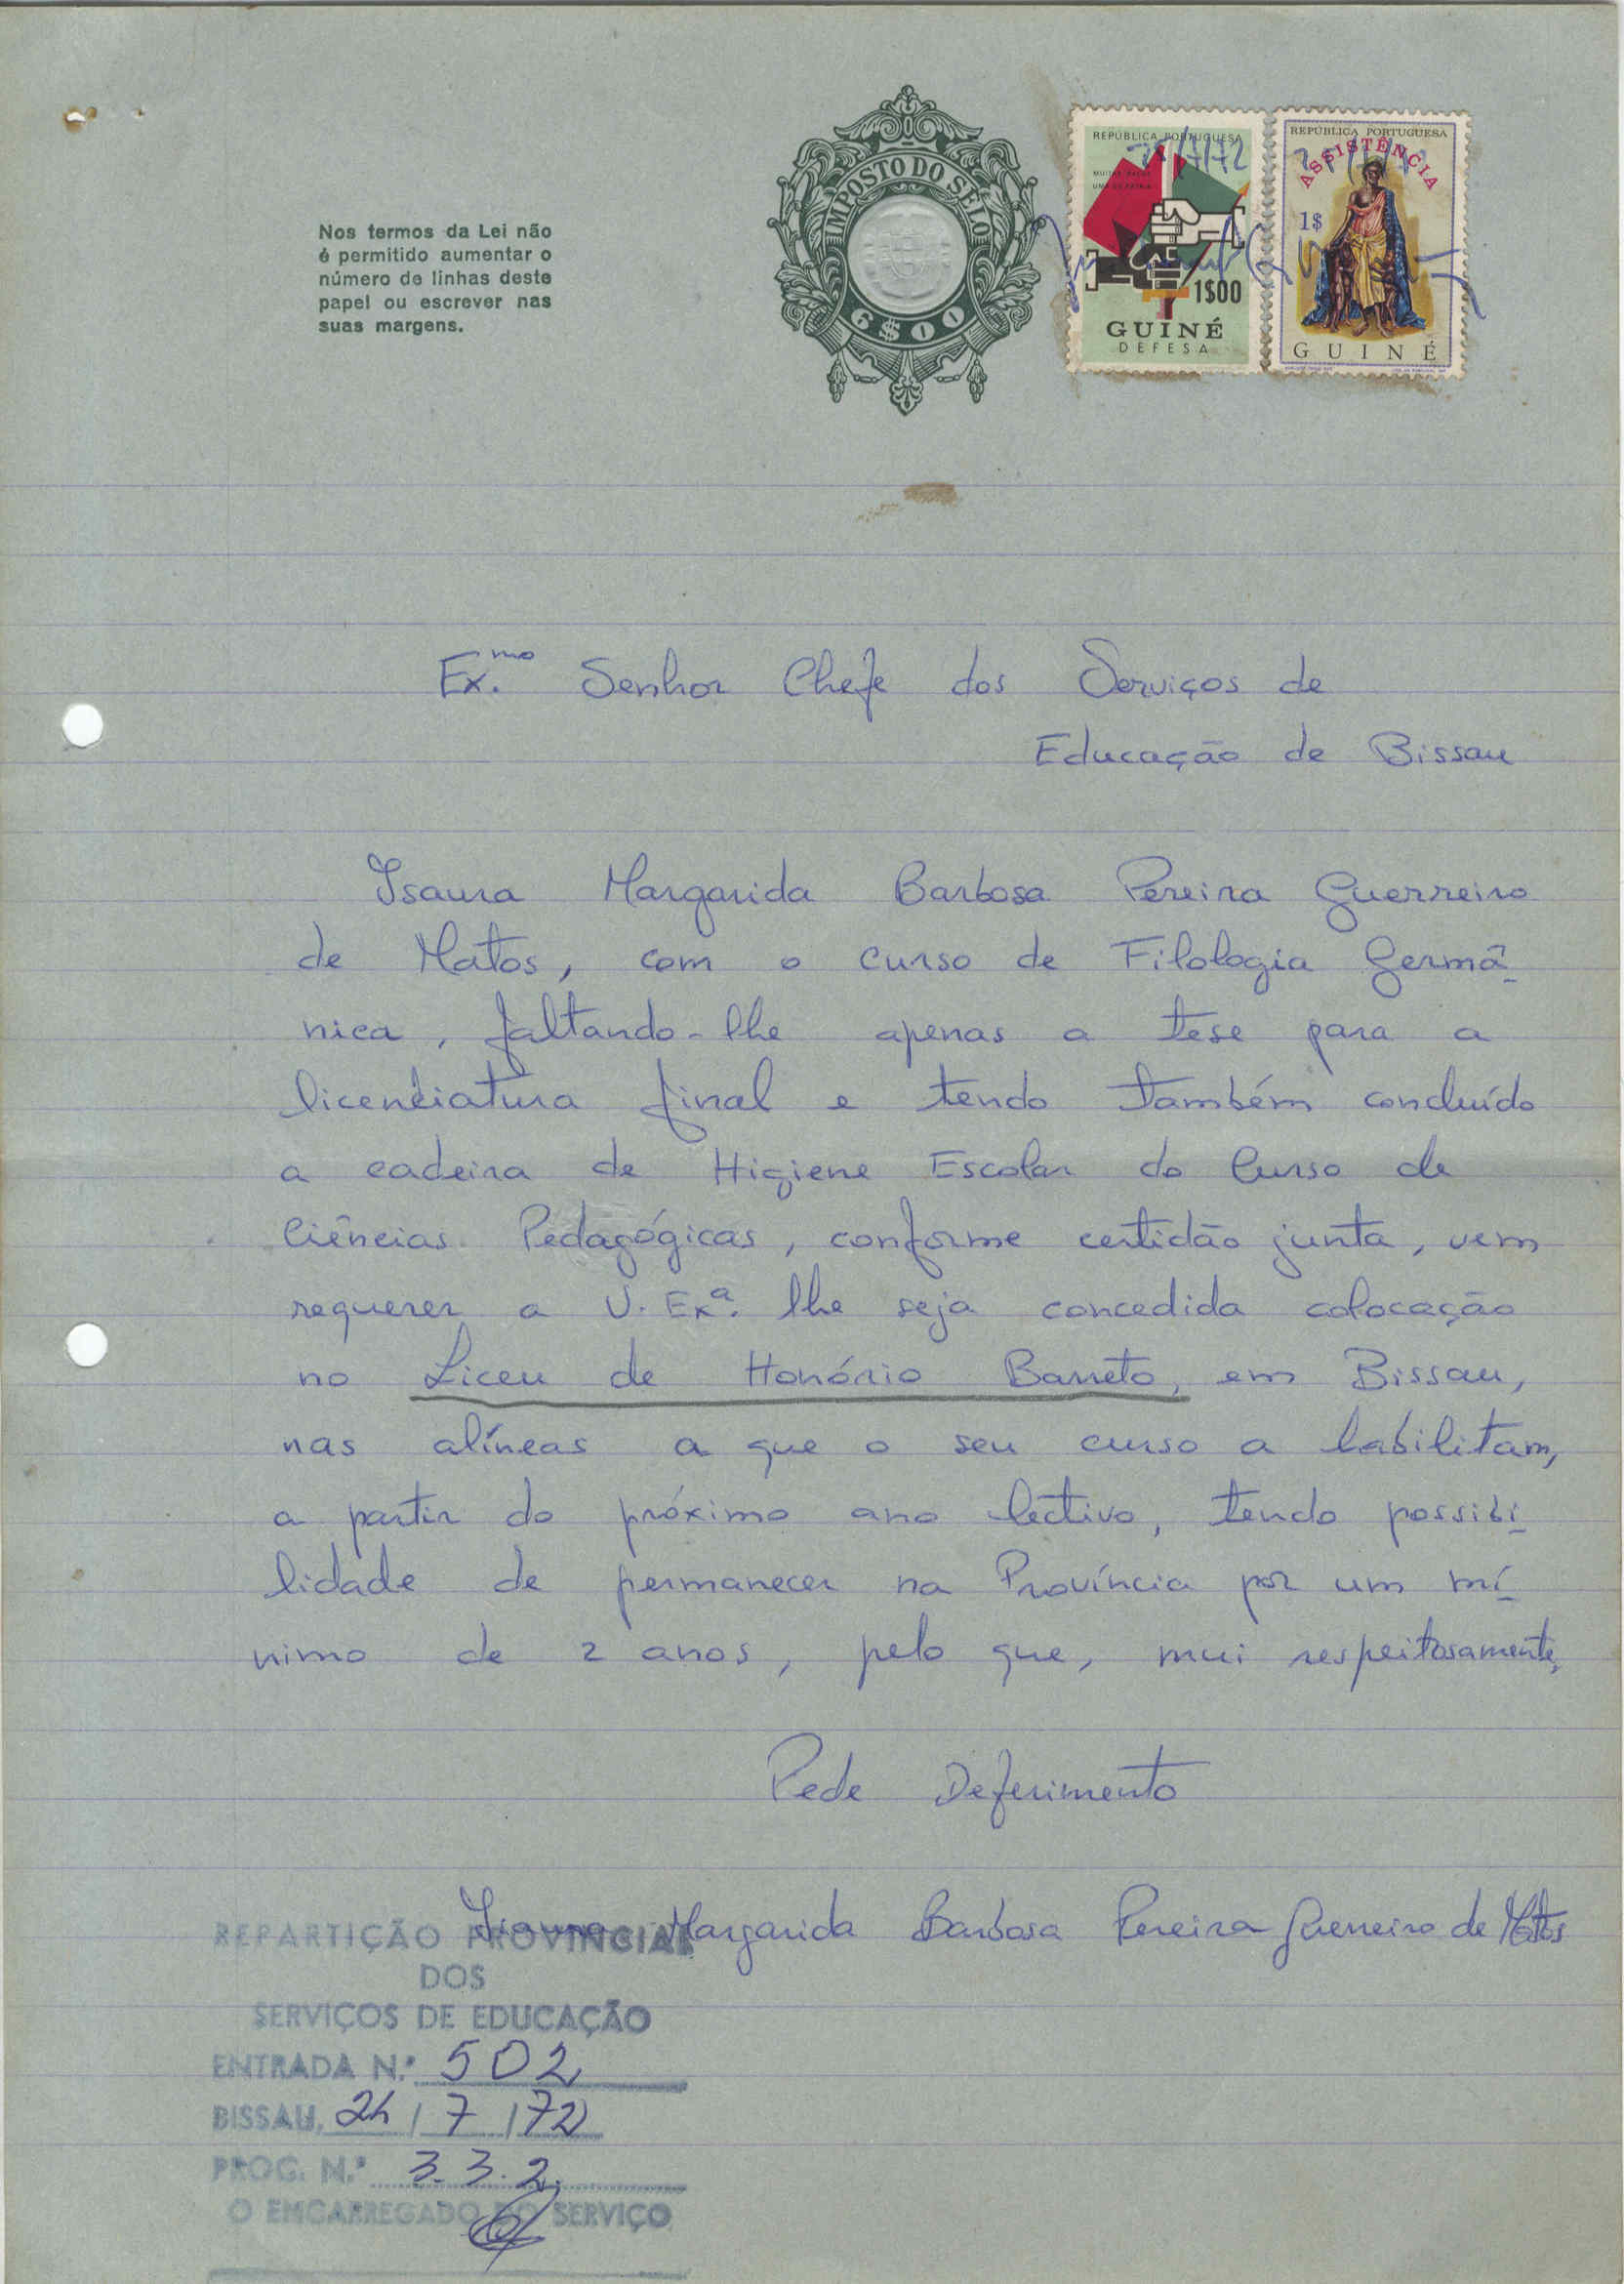 Nos termos da Lei não
é permitido aumentar o
número de linhas deste
papel ou escrever nas
suas margens.
IMPOSTO DO SELO
6$00
REPÚBLICA PORTUGUESA
1$00
GUINÉ
DEFESA
REPÚBLICA PORTUGUESA
ASSISTÊNCIA
1$
GUINÉ
Ex.mo Senhor Chefe dos Serviços de
Educação de Bissau
Isaura Margarida Barbosa Pereira Guerreiro
de Matos, com o curso de Filologia Germâ-
nica, faltando-lhe apenas a tese para a
licenciatura final e tendo também concluído
a cadeira de Higiene Escolar do Curso de
Ciências Pedagógicas, conforme certidão junta, vem
requerer a V. Exª. lhe seja concedida colocação
no Liceu de Honório Barreto, em Bissau,
nas alíneas a que o seu curso a habilitam,
a partir do próximo ano lectivo, tendo possibi-
lidade de permanecer na Província por um mí-
nimo de 2 anos, pelo que, mui respeitosamente,
Pede Deferimento
Isaura Margarida Barbosa Pereira Guerreiro de Matos
REPARTIÇÃO PROVINCIAL
DOS
SERVIÇOS DE EDUCAÇÃO
ENTRADA N.º 502
BISSAU, 24/7/72
PROG. N.º 3.3.2.
O ENCARREGADO DO SERVIÇO